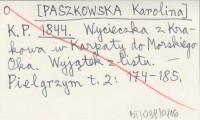 O [PASZKOWSKA Karolina]
K.P. 1844. Wycieczka z Kra-
kowa w Karpaty do Morskiego
Oka. Wyjątek z listu. —
Pielgrzym t. 2: 174-185.